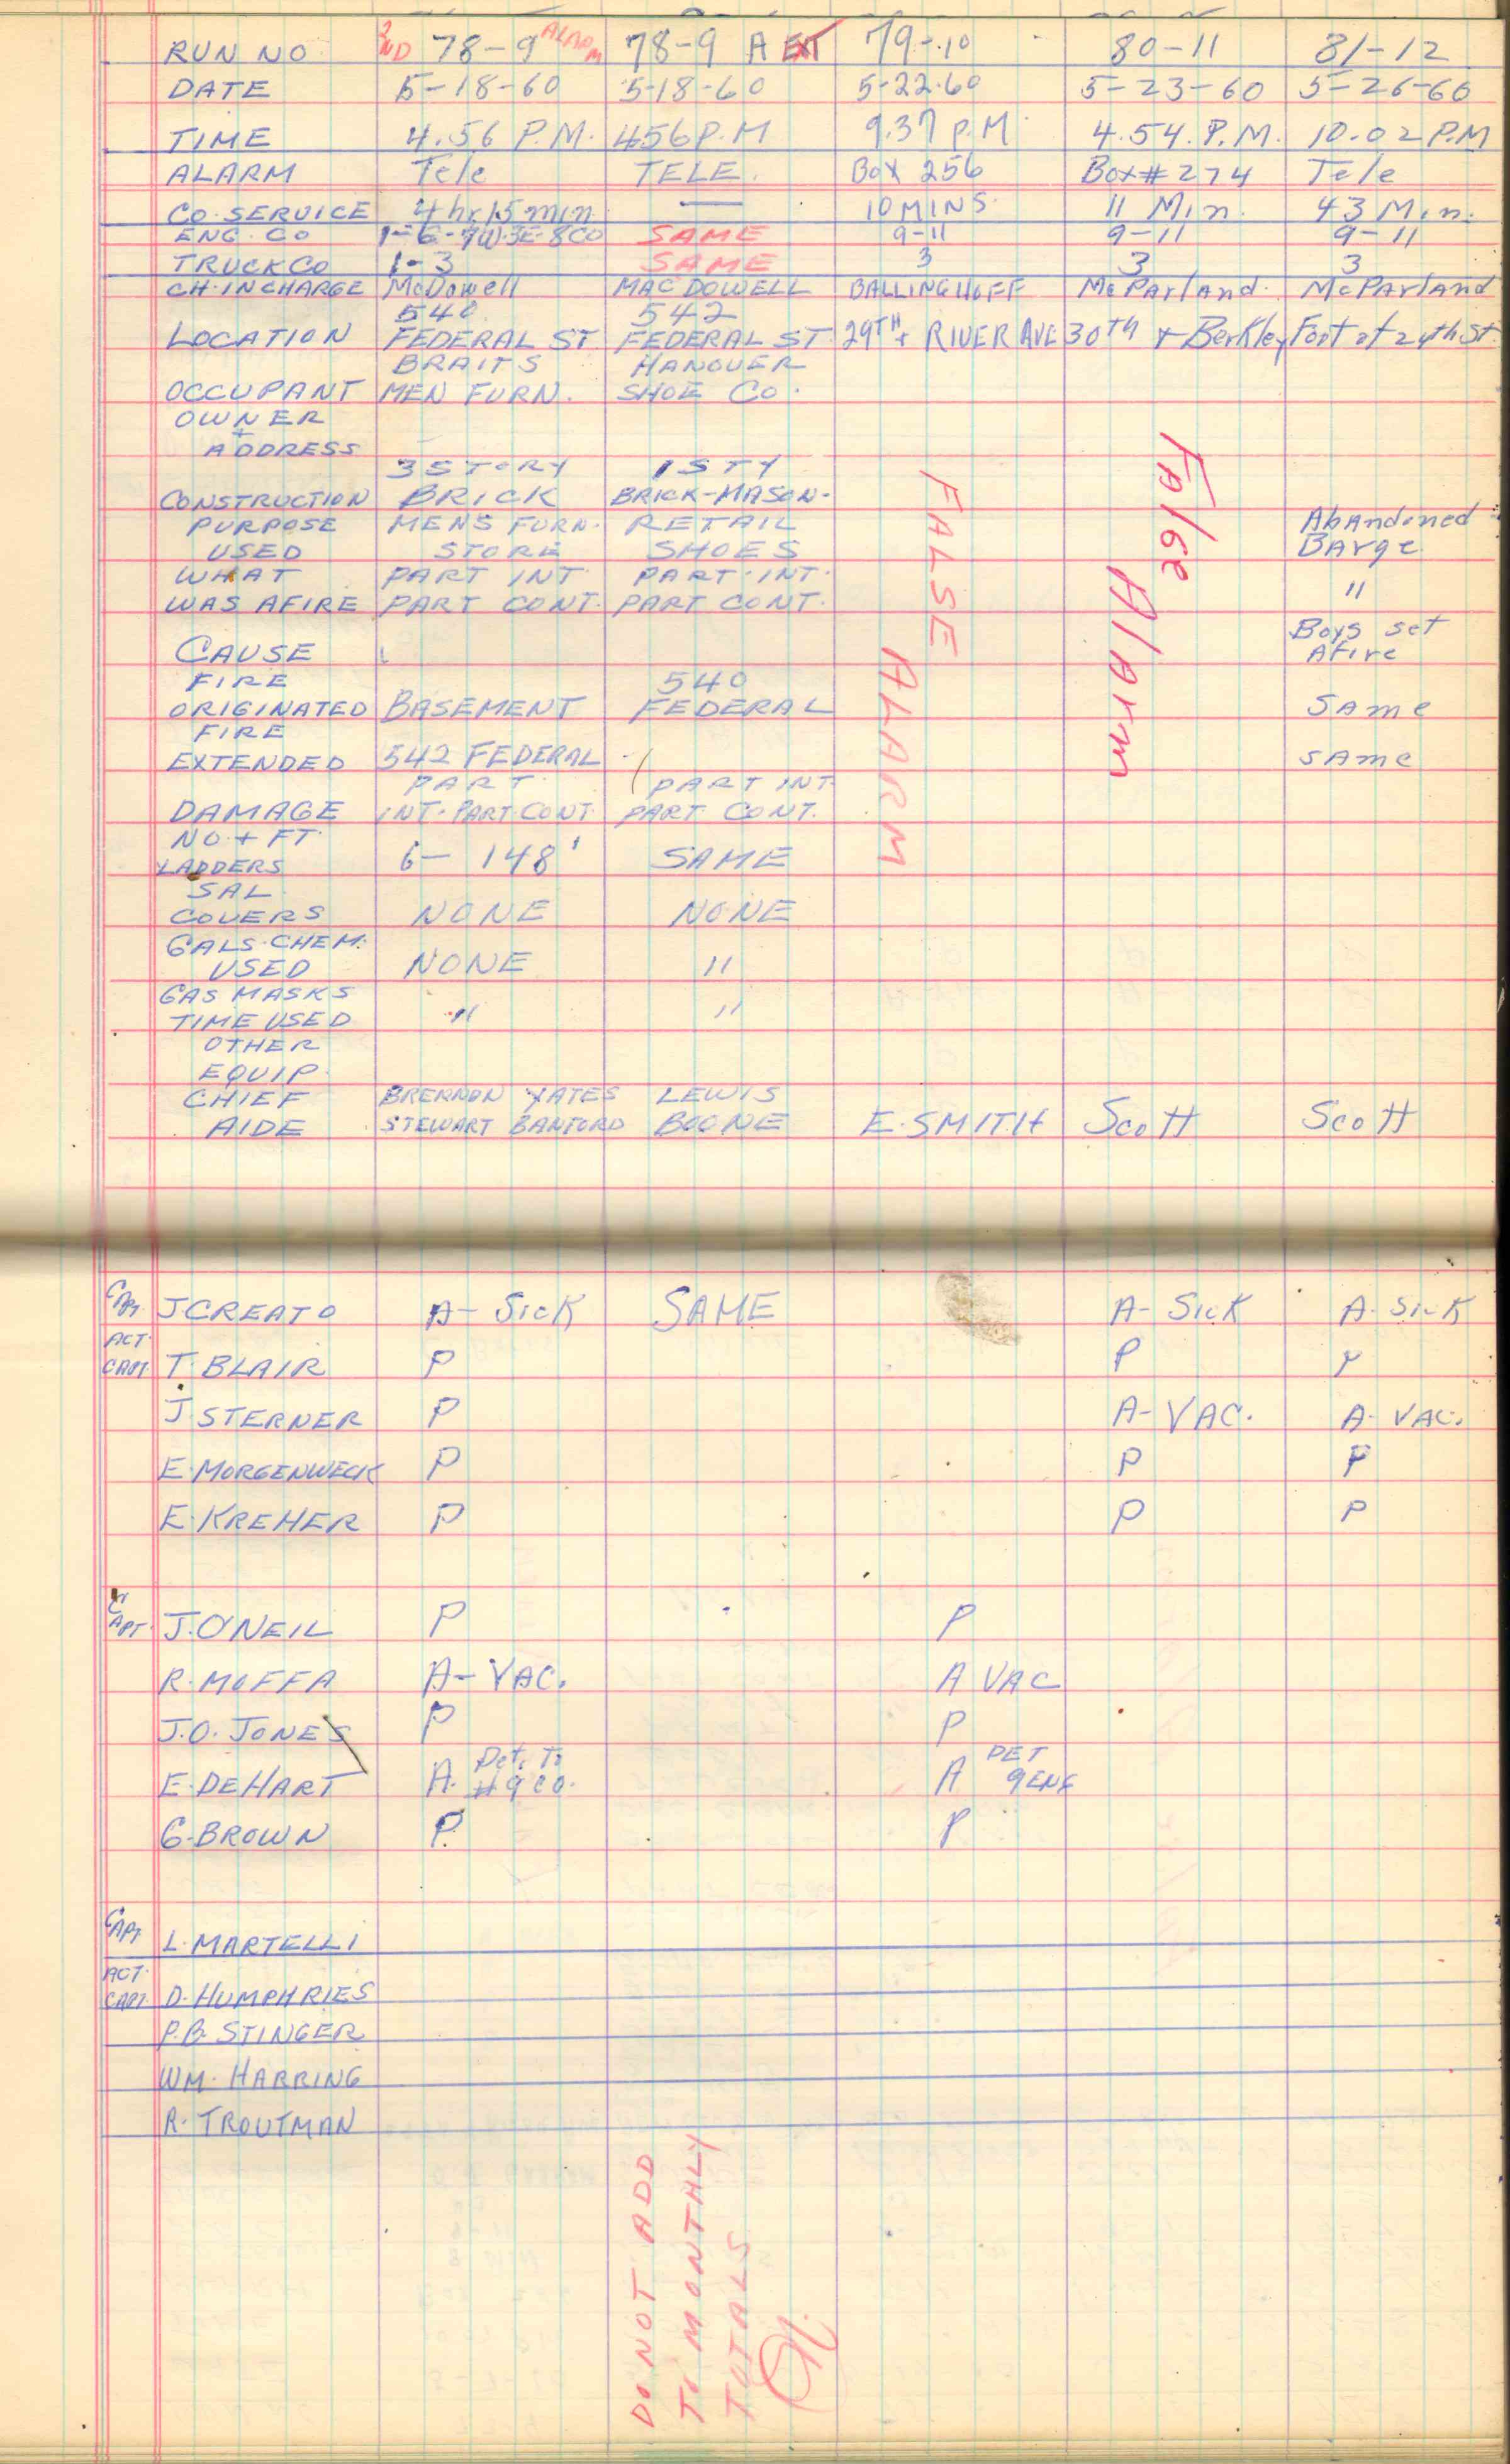 RUN NO. 2ND 78-9 ALARM 78-9 A EXT 79-10 80-11 81-12
DATE 5-18-60 5-18-60 5-22-60 5-23-60 5-26-60
TIME 4.56 P.M. 456 P.M 9.37 P.M. 4.54. P.M. 10.02 P.M
ALARM Tele TELE. BOX 256 Box # 274 Tele
CO. SERVICE 4 hr 15 min. — 10 MINS. 11 Min. 43 Min.
ENG. CO SAME 9-11 9-11 9-11
TRUCK CO 1-3 SAME 3 3 3
CH. IN CHARGE McDowell MACDOWELL BALLINGHOFF McParland. McParland
540 542
LOCATION FEDERAL ST FEDERAL ST. 29TH + RIVER AVE 30TH + Berkley Foot of 24th St.
BRAITS HANOVER
OCCUPANT MEN FURN. SHOE CO.
OWNER
+
ADDRESS
3 STORY 1 STY
CONSTRUCTION BRICK BRICK-MASON-
PURPOSE MENS FURN. RETAIL Abandoned
USED STORE SHOES Barge
WHAT PART INT PART-INT.
WAS AFIRE PART CONT. PART CONT. "
FALSE ALARM
False Alarm
Boys set
CAUSE Afire
FIRE 540
ORIGINATED BASEMENT FEDERAL Same
FIRE
EXTENDED 542 FEDERAL - Same
PART PART INT
DAMAGE INT. PART CONT. PART CONT.
NO. + FT.
LADDERS 6 - 148' SAME
SAL
COVERS NONE NONE
GALS. CHEM.
USED NONE "
GAS MASKS
TIME USED " "
OTHER
EQUIP.
CHIEF BRENNON YATES LEWIS
AIDE STEWART BANFORD BOONE E. SMITH Scott Scott
CAPT. J CREATO A- SICK SAME A- SICK A- SICK
ACT.
CAPT. T. BLAIR P P P
J STERNER P A- VAC. A- VAC.
E. MORGENWECK P P P
E. KREHER P P P
CAPT. J. O'NEIL P P
R. MOFFA A- VAC. A VAC
J. O. JONES P P
E. DEHART A. Det. To #9 co. A DET 9 ENG
G. BROWN P. P
CAPT L. MARTELLI
ACT.
CAPT. D. HUMPHRIES
P.B. STINGER
WM. HARRING
R. TROUTMAN
DO NOT ADD
TO MONTHLY
TOTALS